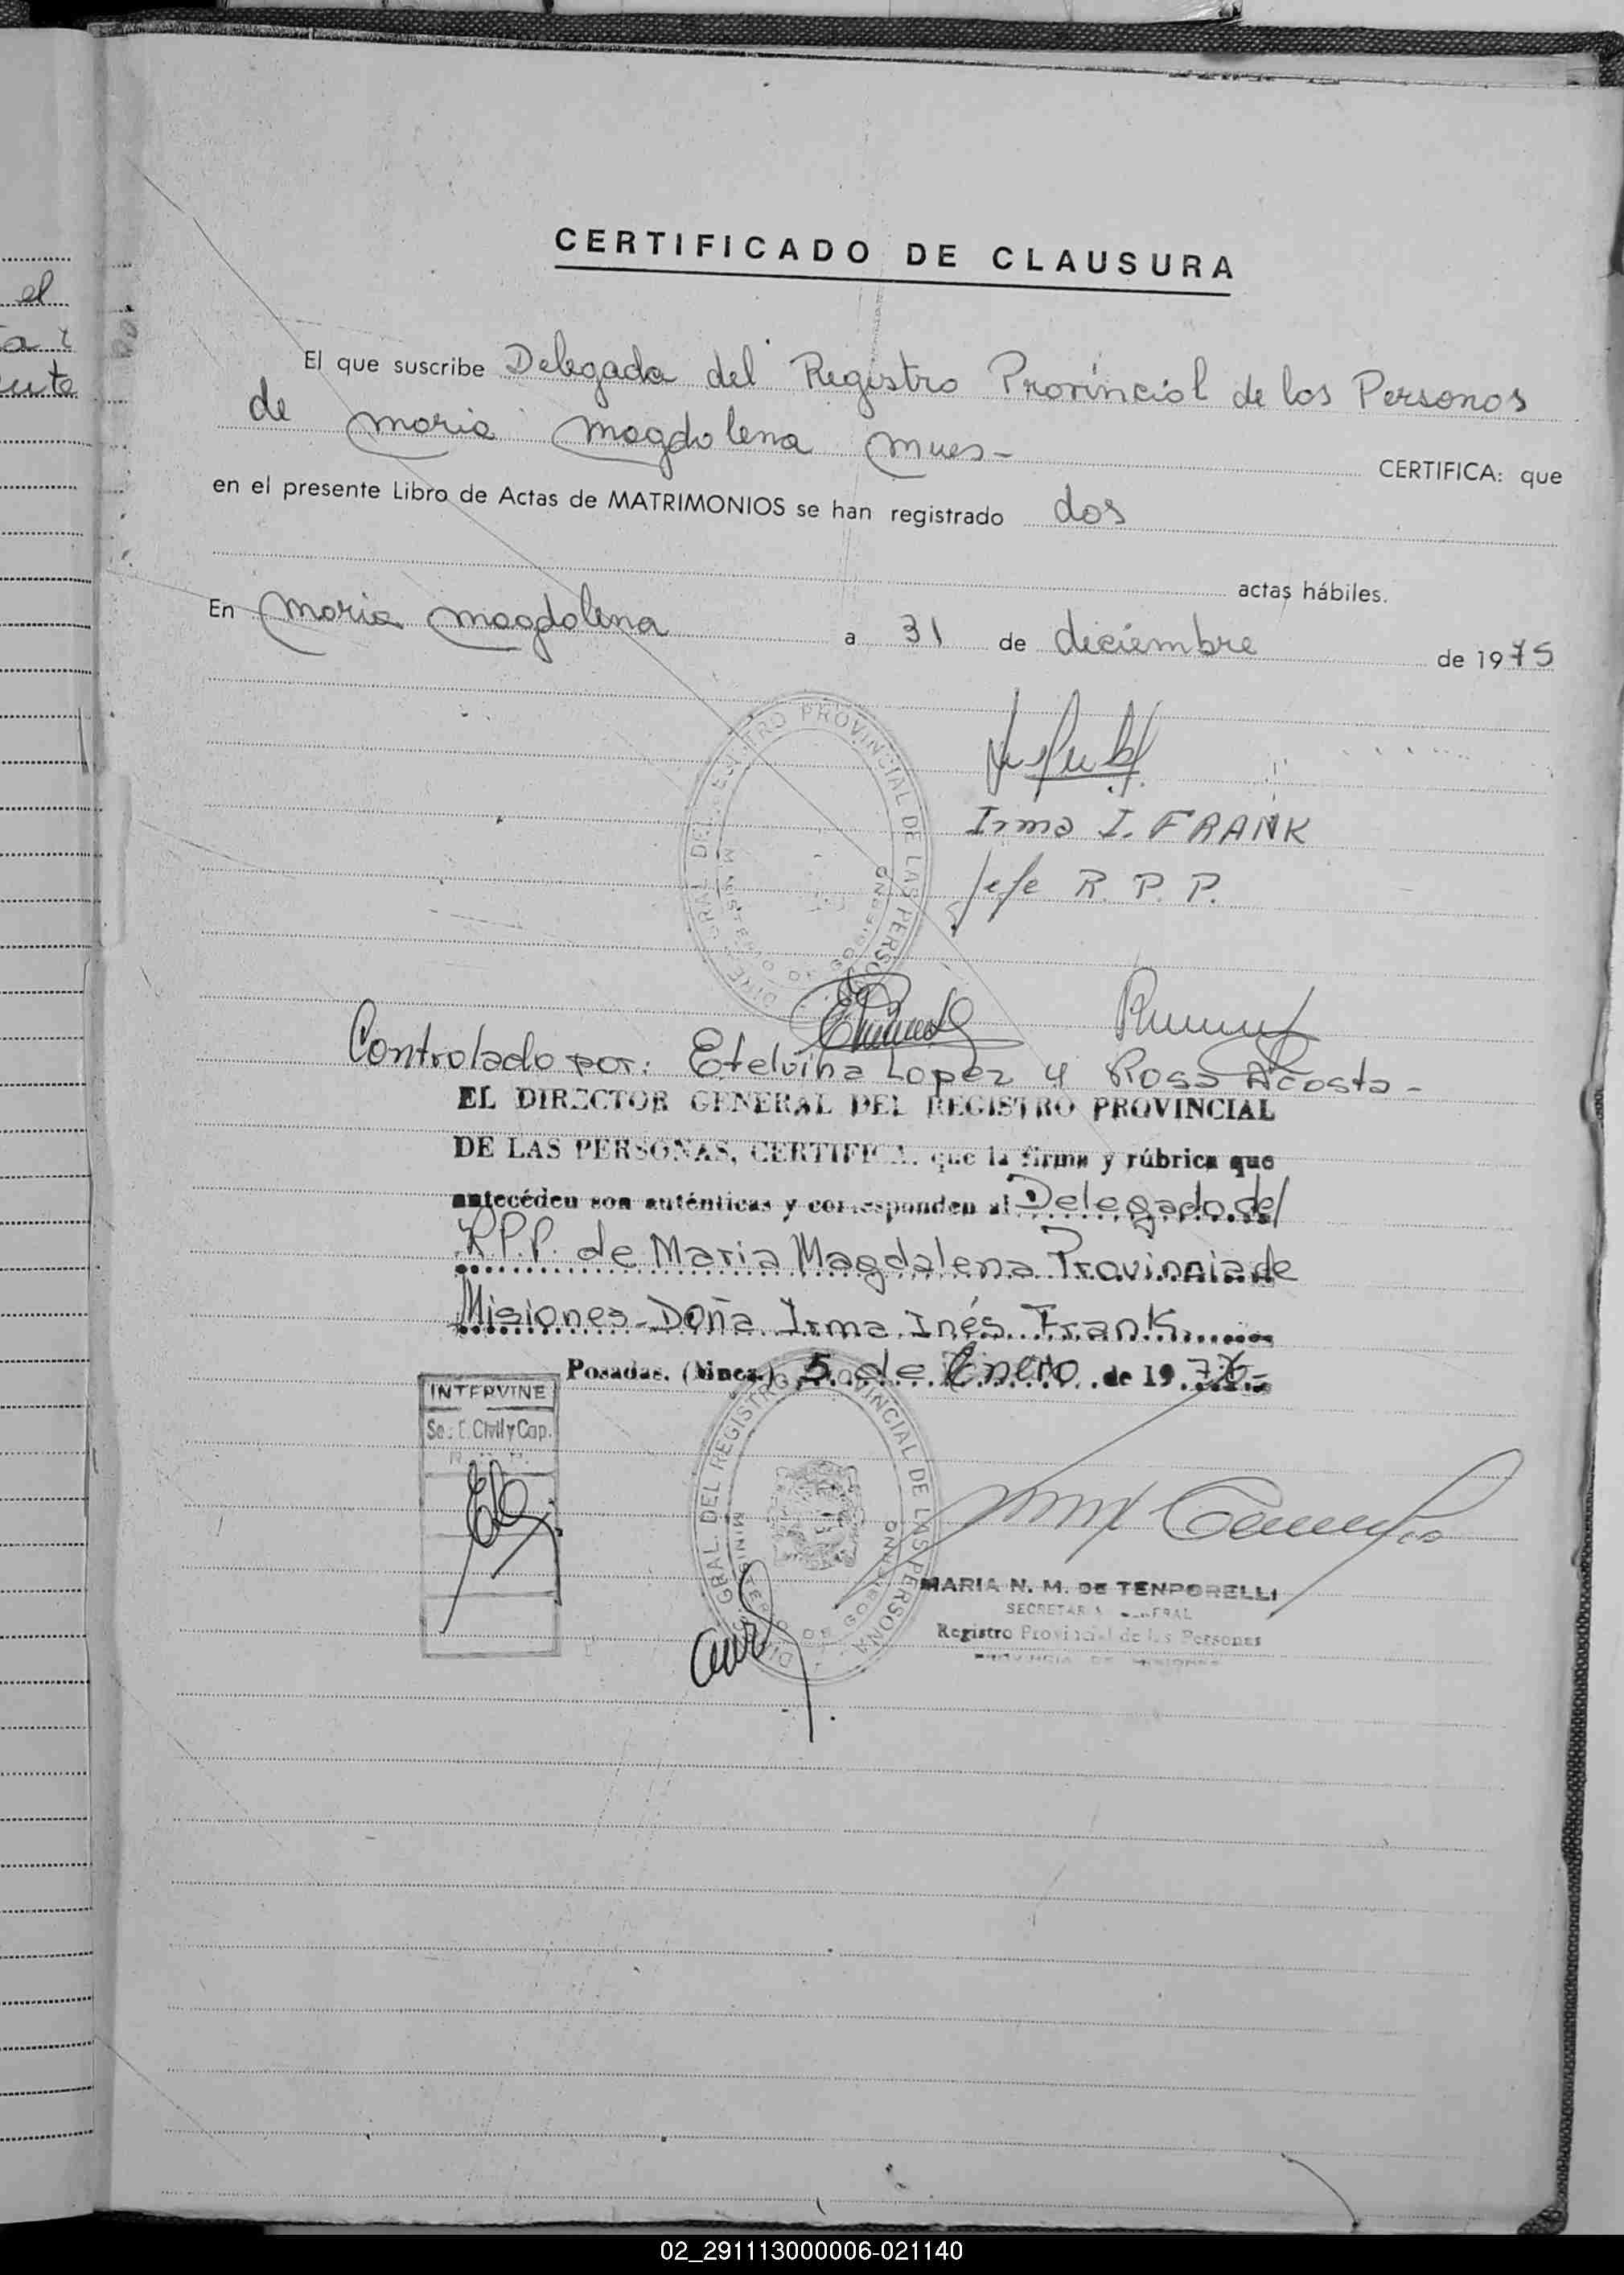 el
ta i
ente
CERTIFICADO DE CLAUSURA
El que suscribe Delegada del Registro Provincial de las Personas
de Maria Magdalena Mnes-
CERTIFICA: que
en el presente Libro de Actas de MATRIMONIOS se han registrado dos
actas hábiles.
En Maria Magdalena a 31 de diciembre de 1975
Irma I. FRANK
Jefe R. P. P.
Controlado por: Etelvina Lopez y Rosa Acosta-
EL DIRECTOR GENERAL DEL REGISTRO PROVINCIAL
DE LAS PERSONAS, CERTIFICA, que la firma y rúbrica que
antecéden son auténticas y corresponden al Delegado del
R.P.P. de Maria Magdalena Provincia de
Misiones-Doña Irma Inés Frank
Posadas. (Mnes.) 5 de Enero de 1976-
INTERVINE
Sec. E. Civil y Cap.
R. P. P.
GRAL DEL REGISTRO PROVINCIAL DE LAS PERSONAS
MINISTERIO DE GOBIERNO
MARIA N. M. DE TENPORELLI
SECRETARIA GENERAL
Registro Provincial de las Personas
PROVINCIA DE MISIONES
02_291113000006-021140